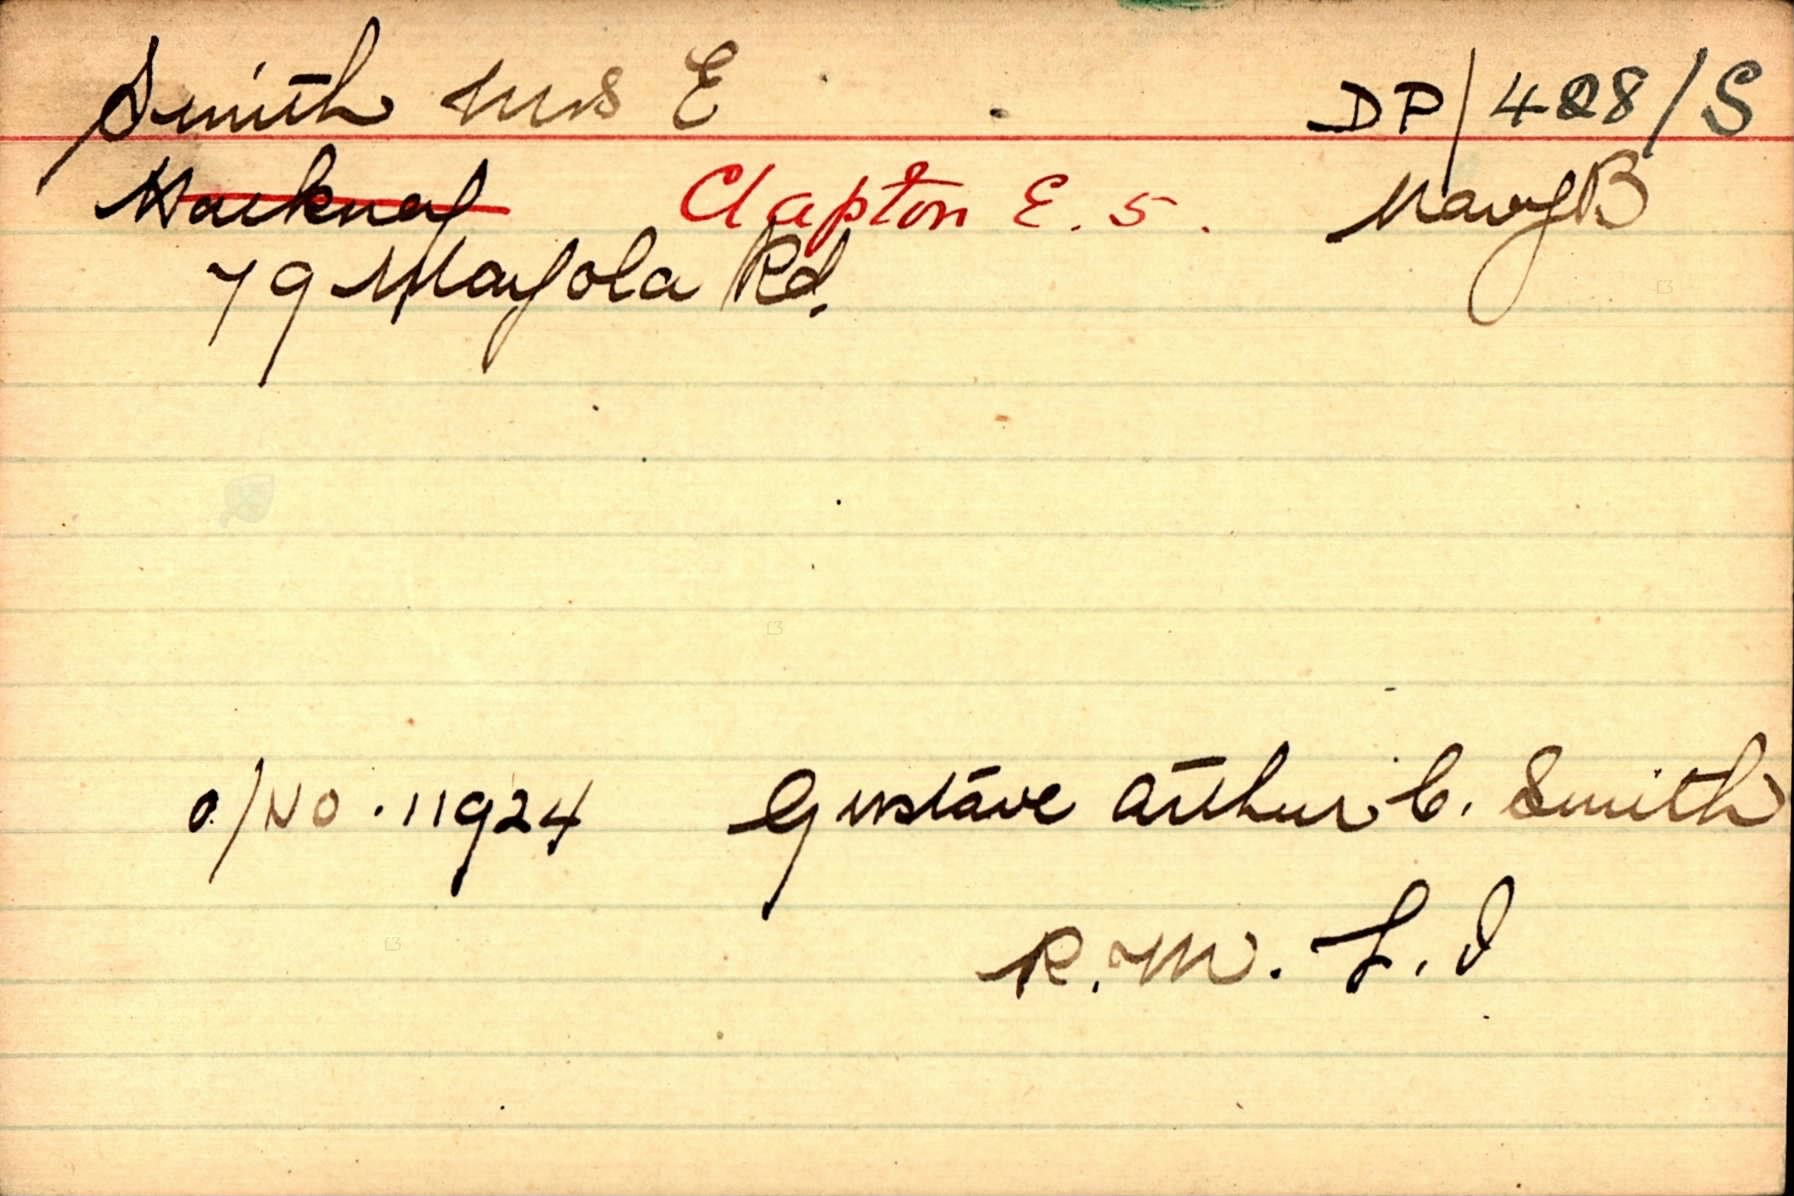 Smith Mrs E DP/488/S
Hackney Clapton E. 5. Navy B
79 Mayola Rd.
O/No. 11924 Gustave Arthur C. Smith
R. M. L. I